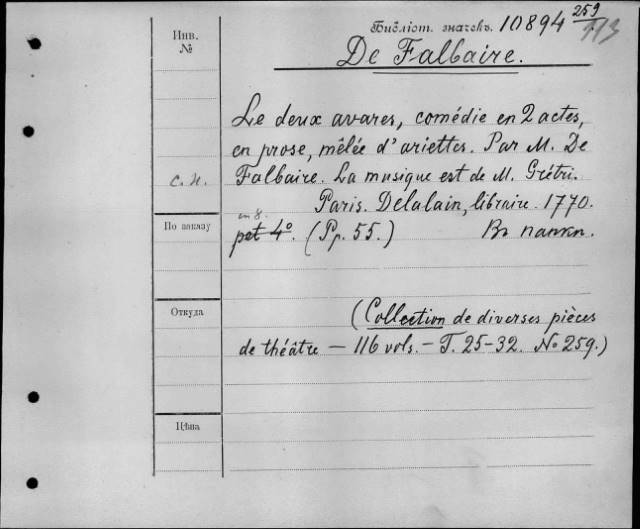 Библіот. значекъ. 10894 259
113
Инв.
№
De Falbaire.
Le deux avares, comédie en 2 actes,
en prose, mêlée d'ariettes. Par M. De
с. н. Falbaire. La musique est de M. Grétri.
Paris. Delalain, libraire. 1770.
in 8.
По заказу pet 4º. (Pp. 55.) Въ папкѣ.
Откуда
(Collection de diverses pièces
de théâtre — 116 vols. — T. 25-32. No 259.)
Цѣна